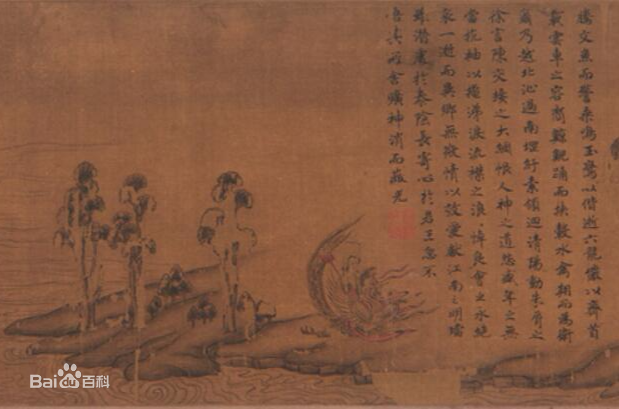 騰文魚而警乘鳴玉鸞以偕逝六龍儼以齊首
載雲車之容裔鯨鯢踊而挾轂水禽翔而為衛
乃越北沚過南堽紆素領迴清陽動朱脣之
徐言陳交接之大綱恨人神之道殊怨盛年之無
當抗袖以掩涕淚流襟之浪、悼良會之永絕
哀一逝而異鄉無微情以效愛獻江南之明璫
雖潛處於泰陰長寄心於君王忽不
悟其所舍悵神消而蔽光
Bai百科